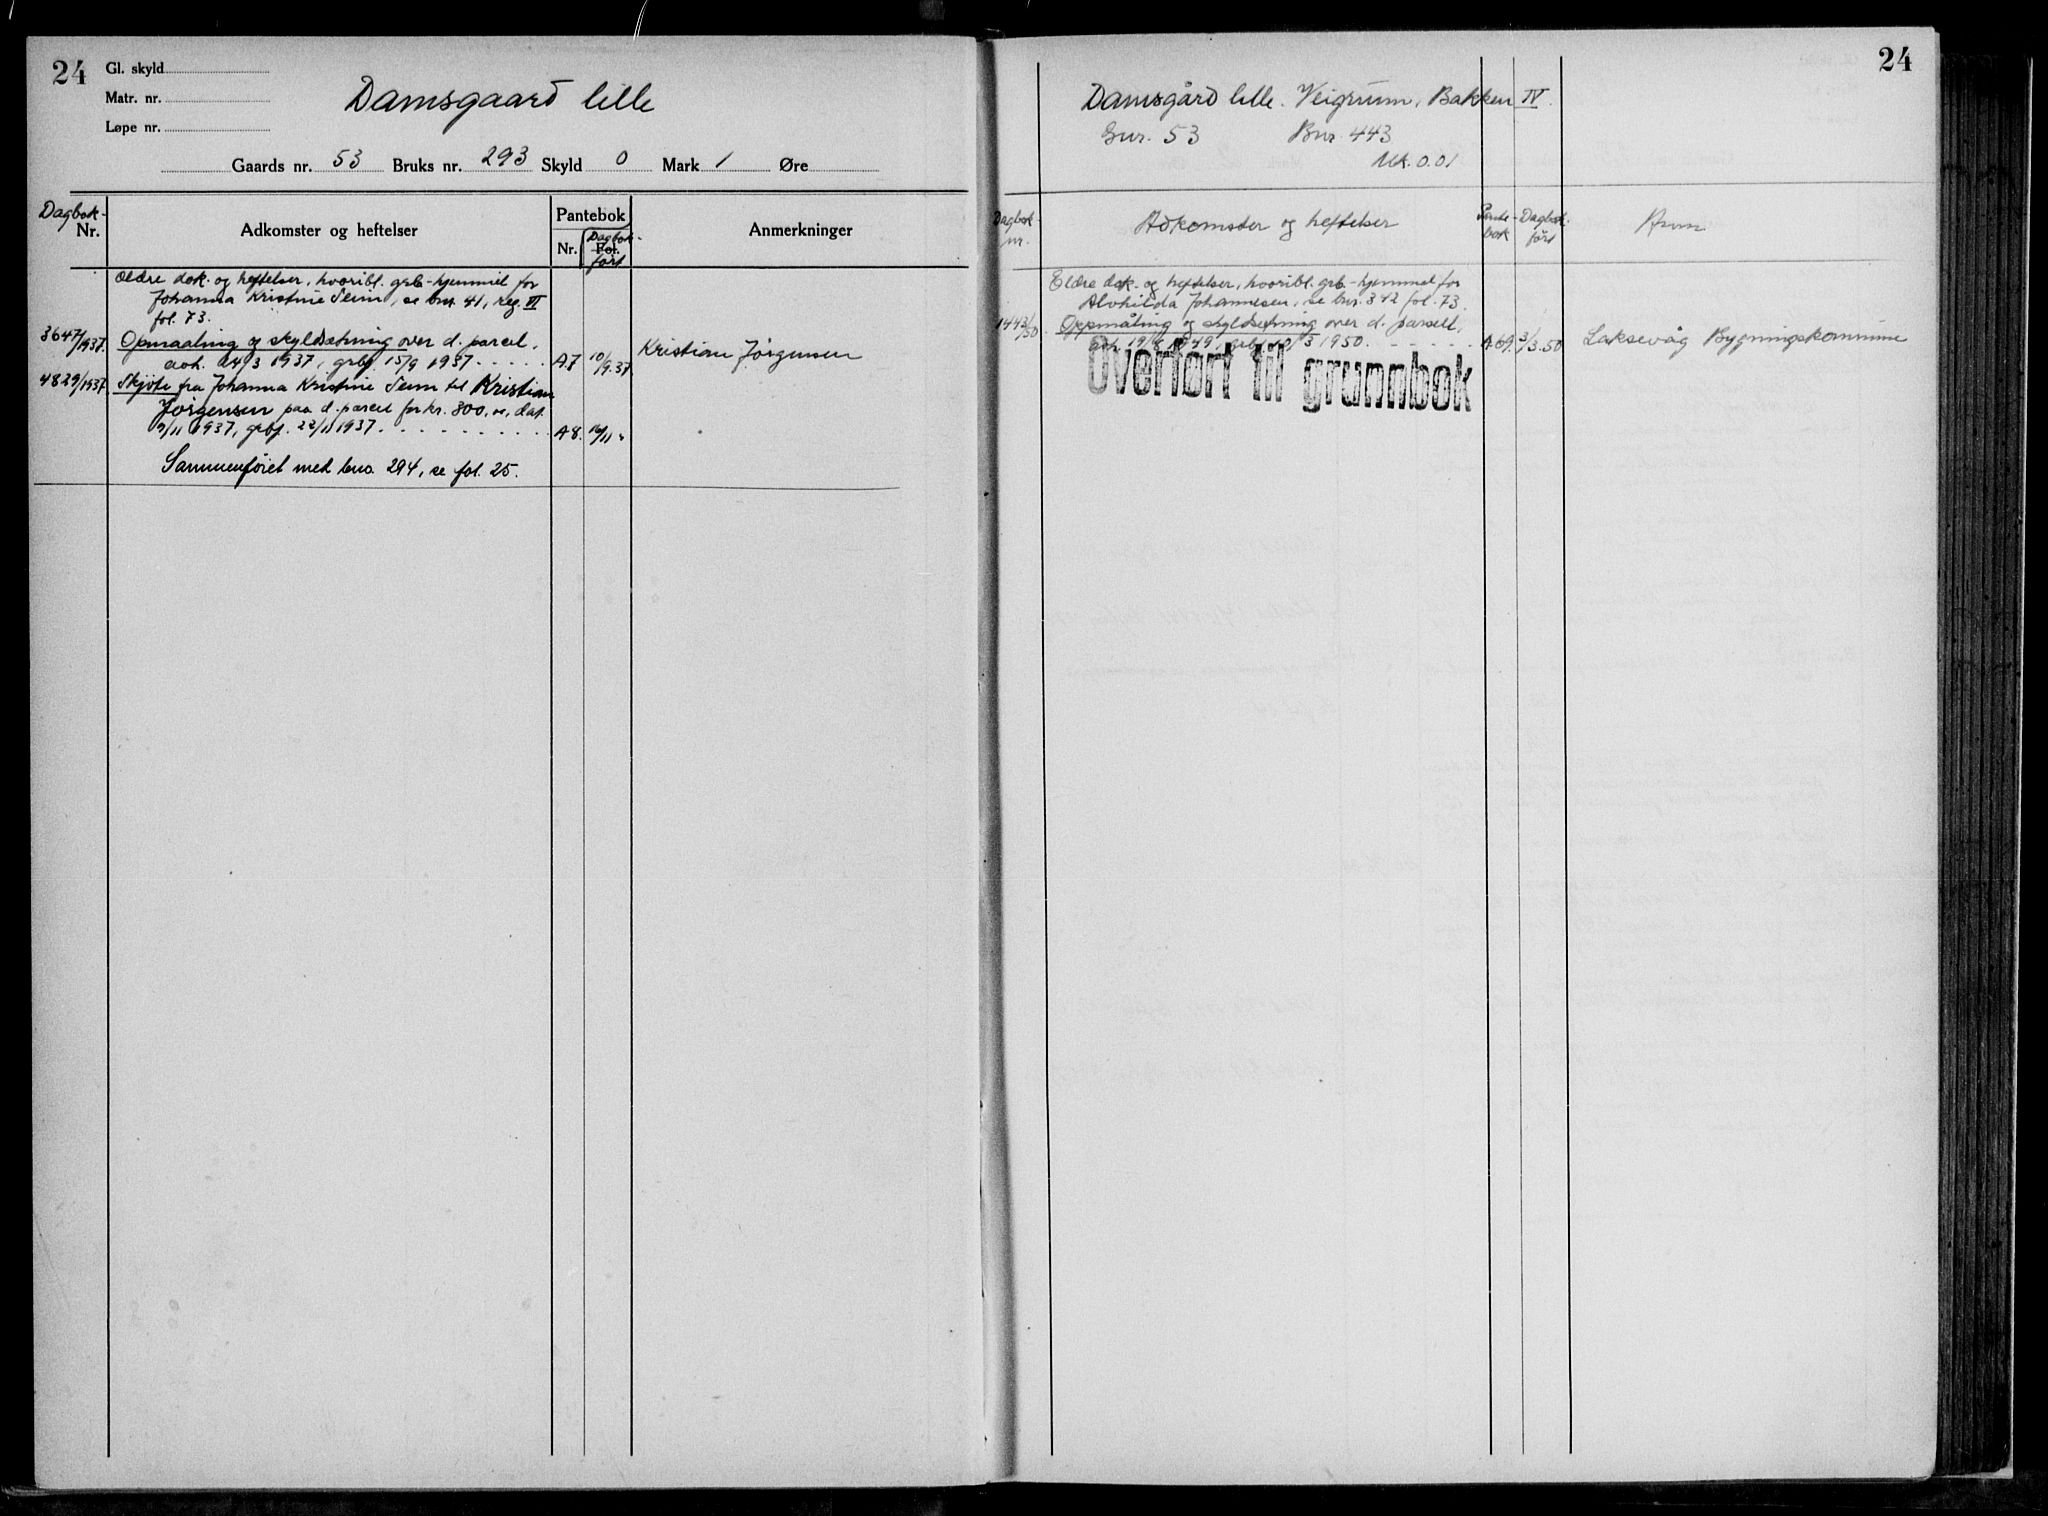 24
Gl. skyld
Matr. nr.
Løpe nr.
Damsgaard lille
Gaards nr. 53 Bruks nr. 293 Skyld 0 Mark 1 Øre
Dagbok-
Nr.
Adkomster og heftelser
Pantebok
Nr.
Dagbok-
Fol.
ført
Anmerkninger
Ældre dok. og heftelser, hvoribl. grb-hjemmel for
Johanna Kristine Seim, se bnr. 41, reg. VI
fol. 73.
3647/1937. Opmaaling og skyldsætning over d. parcel,
avh. 24/3 1937, grbf 15/9 1937 A.7 10/9.37 Kristian Jørgensen
4829/1937. Skjöte fra Johanna Kristine Seim til Kristian
Jørgensen paa d. parcel for kr. 300, dat.
9/11 1937, grbf. 22/11 1937. A 8. 16/11 "
Sammenföiet med bno. 294, se fol. 25.
24
Damsgård lille. Veigrunn, Bakken IV.
Gnr. 53 Bnr. 443
Mk. 0.01
Dagbok-
nr.
Adkomster og heftelser
Pante-
bok
Dagbok-
ført
Anm
Eldre dok. og heftelser, hvoribl. grb-hjemmel for
Alvhilda Johannesen, se bnr. 342 fol. 73.
1443/50. Oppmåling og skyldsetning over d. parsell,
1949, grbf 3 1950. A.69. 3/3.50 Laksevåg Bygningskommune
Overført til grunnbok